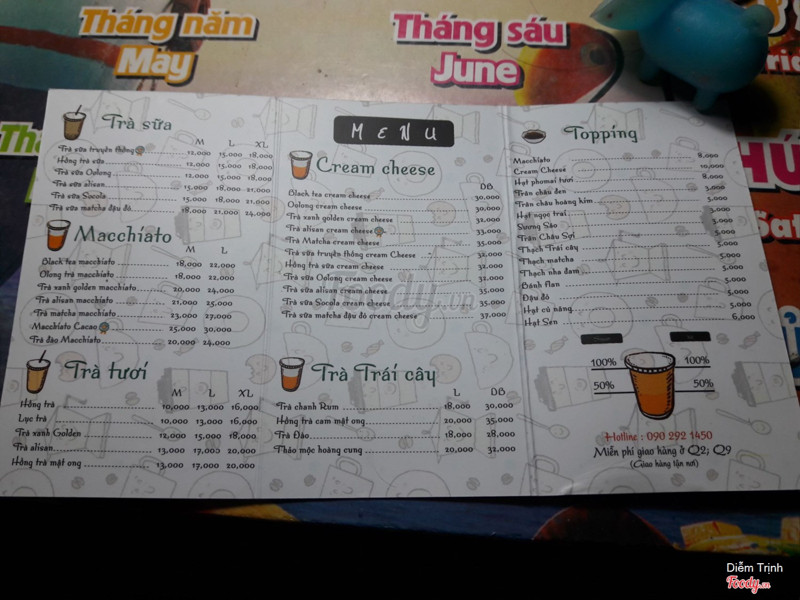 Tháng năm
May
Tháng sáu
June
Trà sữa
M L XL
Trà sữa truyền thống 12,000 15,000 18,000
Hồng trà sữa 12,000 15,000 18,000
Trà sữa Oolong 12,000 15,000 18,000
Trà sữa alisan 15,000 18,000 21,000
Trà sữa Socola 15,000 18,000 21,000
Trà sữa matcha đậu đỏ 18,000 21,000 24,000
Macchiato
M L
Black tea macchiato 18,000 22,000
Olong trà macchiato 18,000 22,000
Trà xanh golden macchiato 20,000 24,000
Trà alisan macchiato 21,000 25,000
Trà matcha macchiato 23,000 27,000
Macchiato Cacao 25,000 30,000
Trà đào Macchiato 20,000 24,000
Trà tươi
M L XL
Hồng trà 10,000 13,000 16,000
Lục trà 10,000 13,000 16,000
Trà xanh Golden 12,000 15,000 18,000
Trà alisan 13,000 17,000 20,000
Hồng trà mật ong 13,000 17,000 20,000
MENU
Cream cheese
ĐB
Black tea cream cheese 30,000
Oolong cream cheese 30,000
Trà xanh golden cream cheese 32,000
Trà alisan cream cheese 33,000
Trà Matcha cream cheese 35,000
Trà sữa truyền thống cream Cheese 32,000
Hồng trà sữa cream cheese 32,000
Trà sữa Oolong cream cheese 32,000
Trà sữa alisan cream cheese 35,000
Trà sữa Socola cream cheese 35,000
Trà sữa matcha đậu đỏ cream cheese 37,000
Trà Trái cây
L ĐB
Trà chanh Rum 18,000 30,000
Hồng trà cam mật ong 20,000 35,000
Trà Đào 18,000 28,000
Thảo mộc hoàng cung 20,000 32,000
Topping
Macchiato 8,000
Cream Cheese 10,000
Hạt phumai tươi 8,000
Trân châu đen 3,000
Trân châu hoàng kim 3,000
Hạt ngọc trai 3,000
Sương Sáo 3,000
Trân Châu Sợi 5,000
Thạch Trái cây 5,000
Thạch matcha 5,000
Thạch nha đam 5,000
Bánh flan 5,000
Đậu đỏ 5,000
Hạt củ năng 5,000
Hạt Sen 6,000
100% 100%
50% 50%
Hotline : 090 292 1450
Miễn phí giao hàng ở Q2; Q9
(Giao hàng tận nơi)
Foody.vn
Diễm Trịnh
Foody.vn